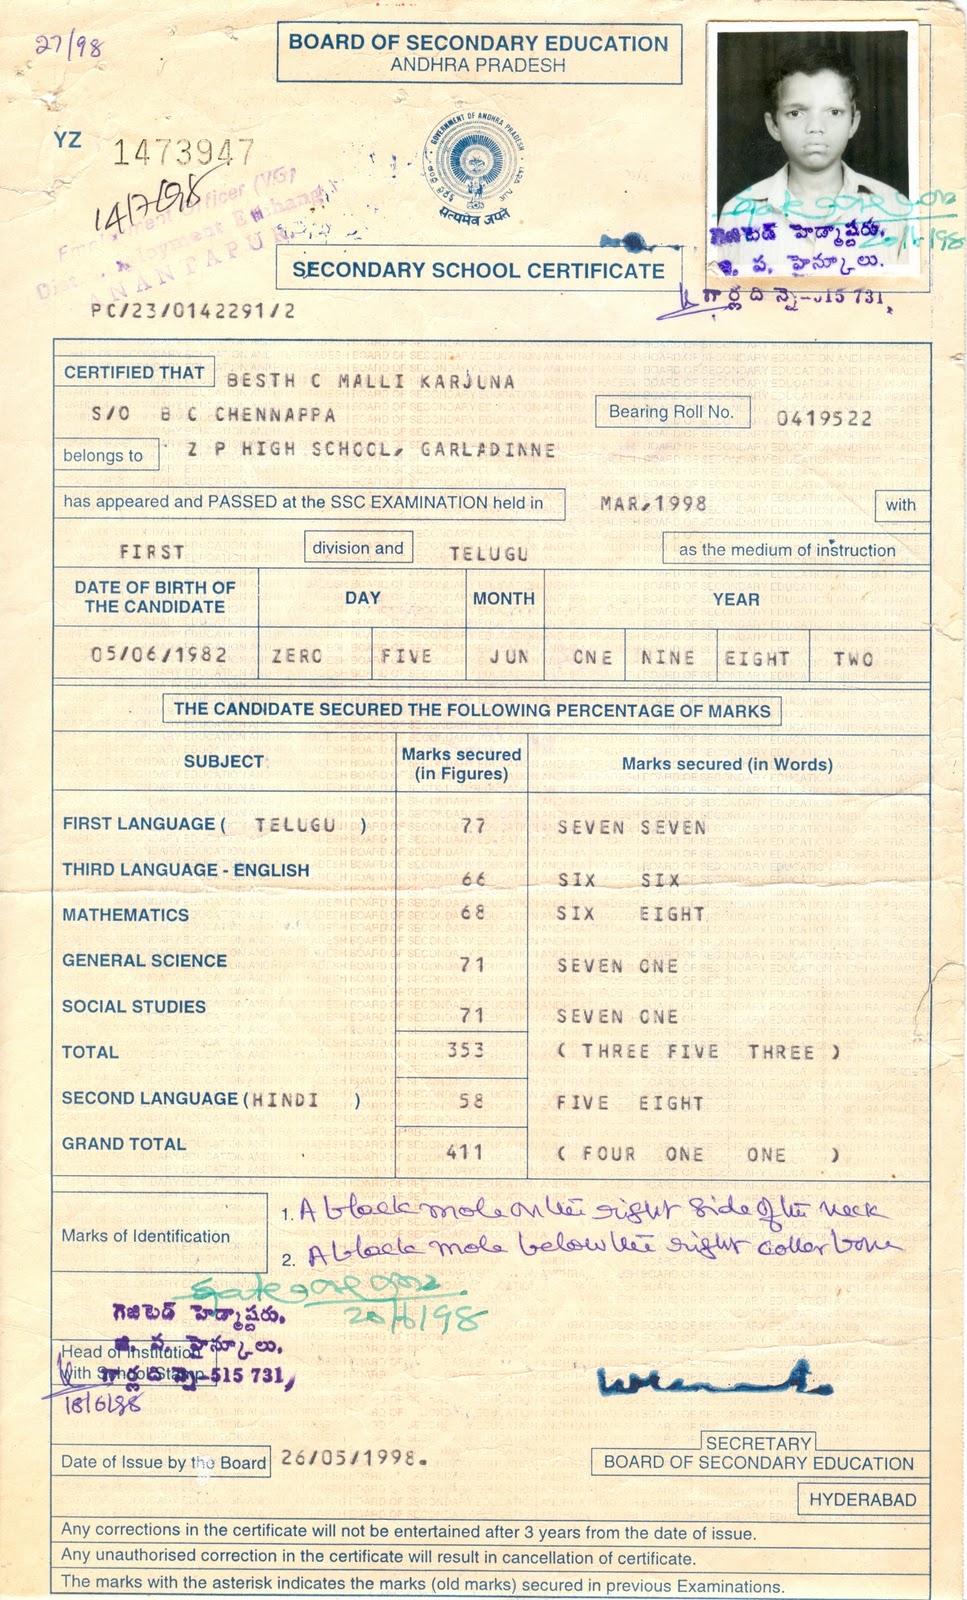 27/98
BOARD OF SECONDARY EDUCATION
ANDHRA PRADESH
YZ 1473947
14/7/98
GOVERNMENT OF ANDHRA PRADESH
सत्यमेव जयते
Employment Officer (VG)
Employment Exchange
ANANTAPUR
SECONDARY SCHOOL CERTIFICATE
గెజిటెడ్ హెడ్మాష్టరు,
జి. ప. హైస్కూలు.
గార్లదిన్నె-515 731,
PC/23/0142291/2
CERTIFIED THAT BESTH C MALLI KARJUNA
S/O B C CHENNAPPA Bearing Roll No. 0419522
belongs to Z P HIGH SCHOOL, GARLADINNE
has appeared and PASSED at the SSC EXAMINATION held in MAR,1998 with
FIRST division and TELUGU as the medium of instruction
DATE OF BIRTH OF THE CANDIDATE DAY MONTH YEAR
05/06/1982 ZERO FIVE JUN ONE NINE EIGHT TWO
THE CANDIDATE SECURED THE FOLLOWING PERCENTAGE OF MARKS
SUBJECT Marks secured (in Figures) Marks secured (in Words)
FIRST LANGUAGE ( TELUGU ) 77 SEVEN SEVEN
THIRD LANGUAGE - ENGLISH 66 SIX SIX
MATHEMATICS 68 SIX EIGHT
GENERAL SCIENCE 71 SEVEN ONE
SOCIAL STUDIES 71 SEVEN ONE
TOTAL 353 ( THREE FIVE THREE )
SECOND LANGUAGE (HINDI ) 58 FIVE EIGHT
GRAND TOTAL 411 ( FOUR ONE ONE )
Marks of Identification
1. A black mole on the right side of the neck
2. A black mole below the right coller bone
20/6/98
గెజిటెడ్ హెడ్మాష్టరు,
జి. ప. హైస్కూలు.
గార్లదిన్నె-515 731,
Head of Institution
with School Stamp
18/6/98
Date of Issue by the Board 26/05/1998.
SECRETARY
BOARD OF SECONDARY EDUCATION
HYDERABAD
Any corrections in the certificate will not be entertained after 3 years from the date of issue.
Any unauthorised correction in the certificate will result in cancellation of certificate.
The marks with the asterisk indicates the marks (old marks) secured in previous Examinations.